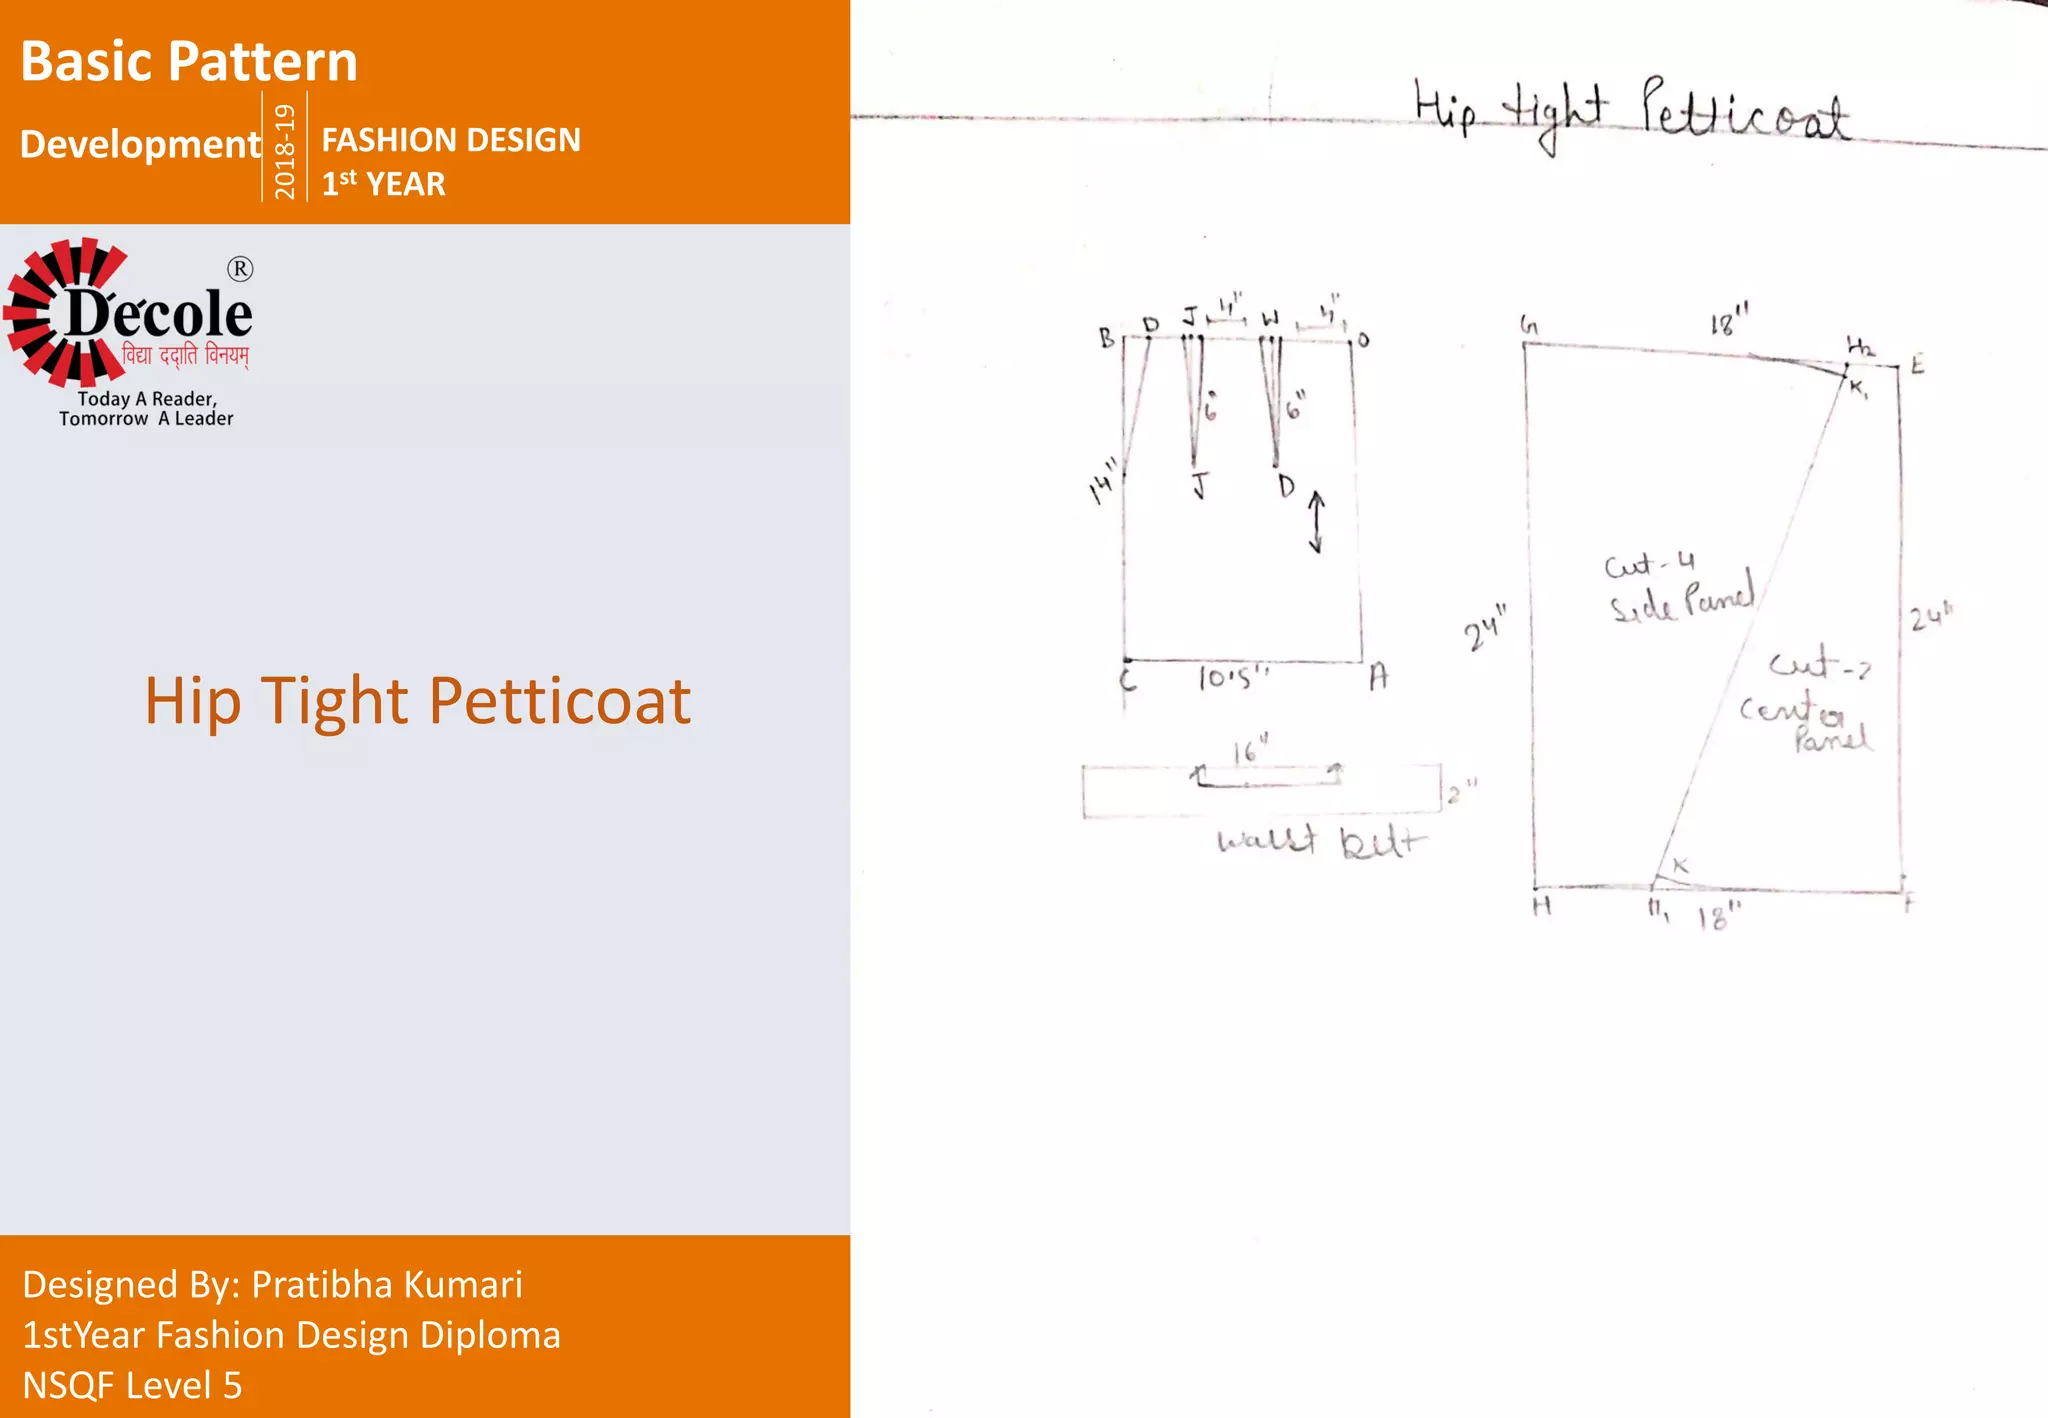 Basic Pattern
Development
2018-19
FASHION DESIGN
1st YEAR
Décole ®
विद्या ददाति विनयम्
Today A Reader,
Tomorrow A Leader
Hip Tight Petticoat
Designed By: Pratibha Kumari
1stYear Fashion Design Diploma
NSQF Level 5
Hip tight Petticoat
4" 4"
B D J W O
6" 6"
14"
J D
C 10.5" A
16"
2"
waist belt
18"
G H2 E
K1
Cut-4
Side Panel
24" 24"
Cut-2
Center
Panel
K
H H1 18" F